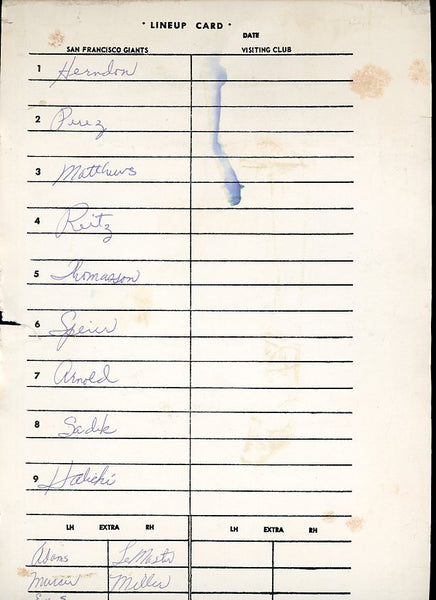 * LINEUP CARD *
DATE
SAN FRANCISCO GIANTS VISITING CLUB
1 Herndon
2 Perez
3 Matthews
4 Reitz
5 Thomasson
6 Speier
7 Arnold
8 Sadek
9 Halicki
LH EXTRA RH LH EXTRA RH
Adams LeMaster
Murcer Miller